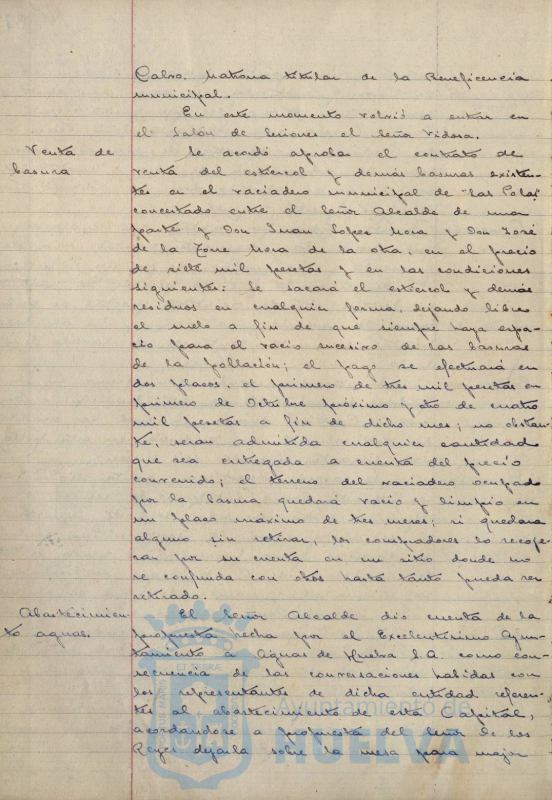 Calvo, Matrona titular de la Beneficencia
municipal.
En este momento volvió a entrar en
el Salón de Sesiones el Señor Vidosa.
Venta de
basura
Se acordó aprobar el contrato de
venta del estiercol y demás basuras existen-
tes en el vaciadero municipal de "Las Polas"
concertado entre el Señor Alcalde de una
parte y Don Juan Lopez Mora y Don José
de la Torre Mora de la otra, en el precio
de siete mil pesetas y en las condiciones
siguientes: Se sacará el estiercol y demás
residuos en cualquier forma, dejando libre
el suelo a fin de que siempre haya espa-
cio para el vacio sucesivo de las basuras
de la población; el pago se efectuará en
dos plazos, el primero de tres mil pesetas en
primero de Octubre próximo y otro de cuatro
mil pesetas a fin de dicho mes; no obstan-
te, seran admitida cualquier cantidad
que sea entregada a cuenta del precio
convenido; el terreno del vaciadero ocupado
por la basura quedará vacio y limpio en
un plazo máximo de tres meses; si quedara
alguno sin retirar, los compradores lo recoge-
ran por su cuenta en un sitio donde no
se confunda con otros hasta tanto pueda ser
retirado.
Abastecimien-
to aguas.
El Señor Alcalde dió cuenta de la
propuesta hecha por el Excelentísimo Ayun-
tamiento a Aguas de Huelva S.A. como con-
secuencia de las conversaciones habidas con
los representantes de dicha entidad referen-
tes al abastecimiento de esta Capital,
acordándose a propuesta del Señor de los
Reyes dejarla sobre la mesa para mejor
ET TERRAE
Ayuntamiento de
HUELVA